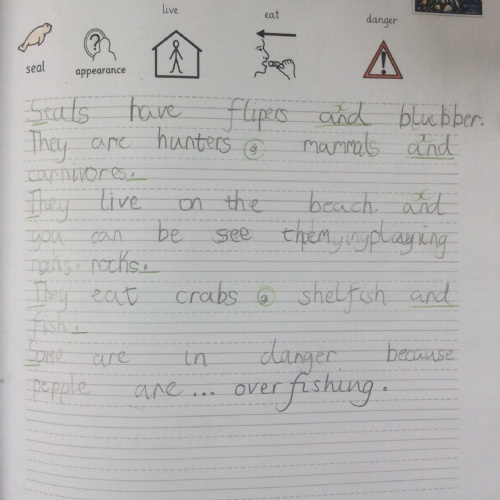 live
eat
danger
seal
appearance
Seals have flipers and blubber.
They are hunters , mammals and
carnivores.
They live on the beach. and
you can be see them playing
rocks.
They eat crabs , shelfish and
fish.
Some are in danger because
people are... overfishing.